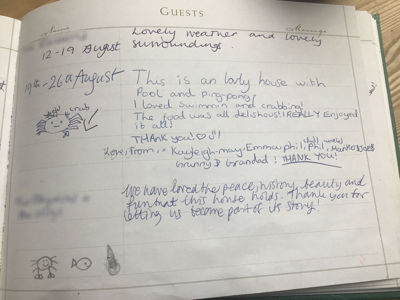 GUESTS
Name
Message
12-19 August
Lovely weather and lovely
surroundings.
19th-26th August
This is an lovly house with
Pool and ping-pong!
I loved swimmin and crabbing!
crab
The food was all delishous! I REALLY Enjoyed
it all!
THANK you!
Love, from... Kayleigh-may, Emma, phil, phil,
Granny & Grandad! THANK YOU!
We have loved the peace, history, beauty and
fun that this house holds. Thank you for
letting us become part of its story!